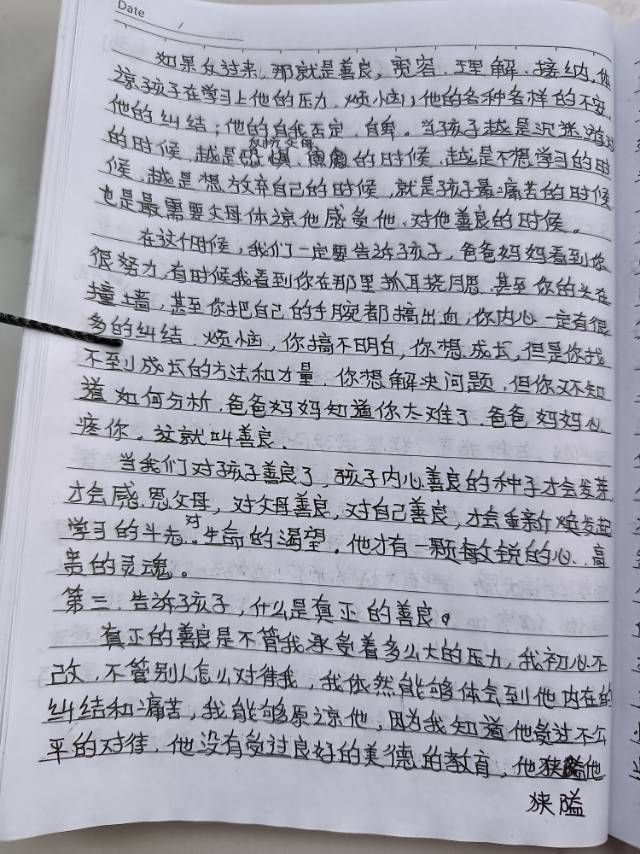 Date /
如果反过来,那就是善良,宽容、理解、接纳,体
谅孩子在学习上他的压力、烦恼;他的各种各样的不安,
他的纠结;他的自我否定、自卑。当孩子越是沉迷游戏
反抗父母
的时候,越是的时候,越是不想学习的时
候,越是想放弃自己的时候,就是孩子最痛苦的时候
也是最需要父母体谅他感受他、对他善良的时候。
在这个时候,我们一定要告诉孩子,爸爸妈妈看到你
很努力,有时候我看到你在那里抓耳挠腮,甚至你的头在
撞墙,甚至你把自己的手腕都搞出血,你内心一定有很
多的纠结、烦恼,你搞不明白,你想成长,但是你找
不到成长的方法和力量,你想解决问题,但你又不知
道如何分析,爸爸妈妈知道你太难了,爸爸妈妈心
疼你。这就叫善良.
当我们对孩子善良了,孩子内心善良的种子才会发芽,
才会感恩父母,对父母善良,对自己善良,才会重新焕发起
学习的斗志,对生命的渴望。他才有一颗敏锐的心、高
贵的灵魂。
第三.告诉孩子,什么是真正的善良。
真正的善良是不管我承受着多么大的压力,我初心不
改,不管别人怎么对待我,我依然能够体会到他内在的
纠结和痛苦,我能够原谅他,因为我知道他受过不公
平的对待,他没有受过良好的美德的教育,他狭隘他
狭隘